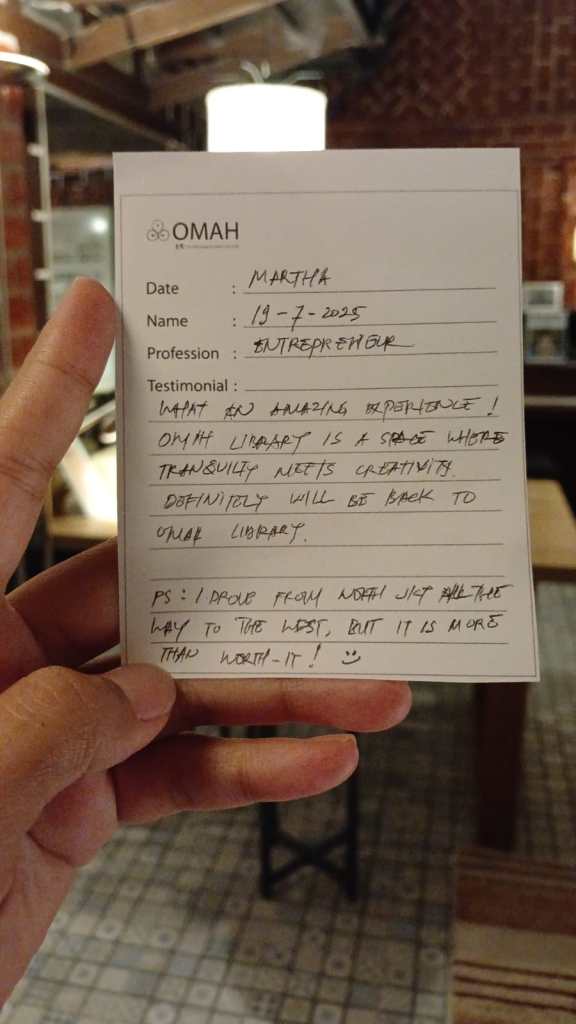 OMAH
Date : MARTHA
Name : 19-7-2025
Profession : ENTREPRENEUR
Testimonial :
WHAT AN AMAZING EXPERIENCE!
OMAH LIBRARY IS A SPACE WHERE
TRANQUILTY MEETS CREATIVITY.
DEFINITELY WILL BE BACK TO
OMAH LIBRARY.
PS: I DROVE FROM NORTH JKT ALL THE
WAY TO THE WEST, BUT IT IS MORE
THAN WORTH-IT! :)